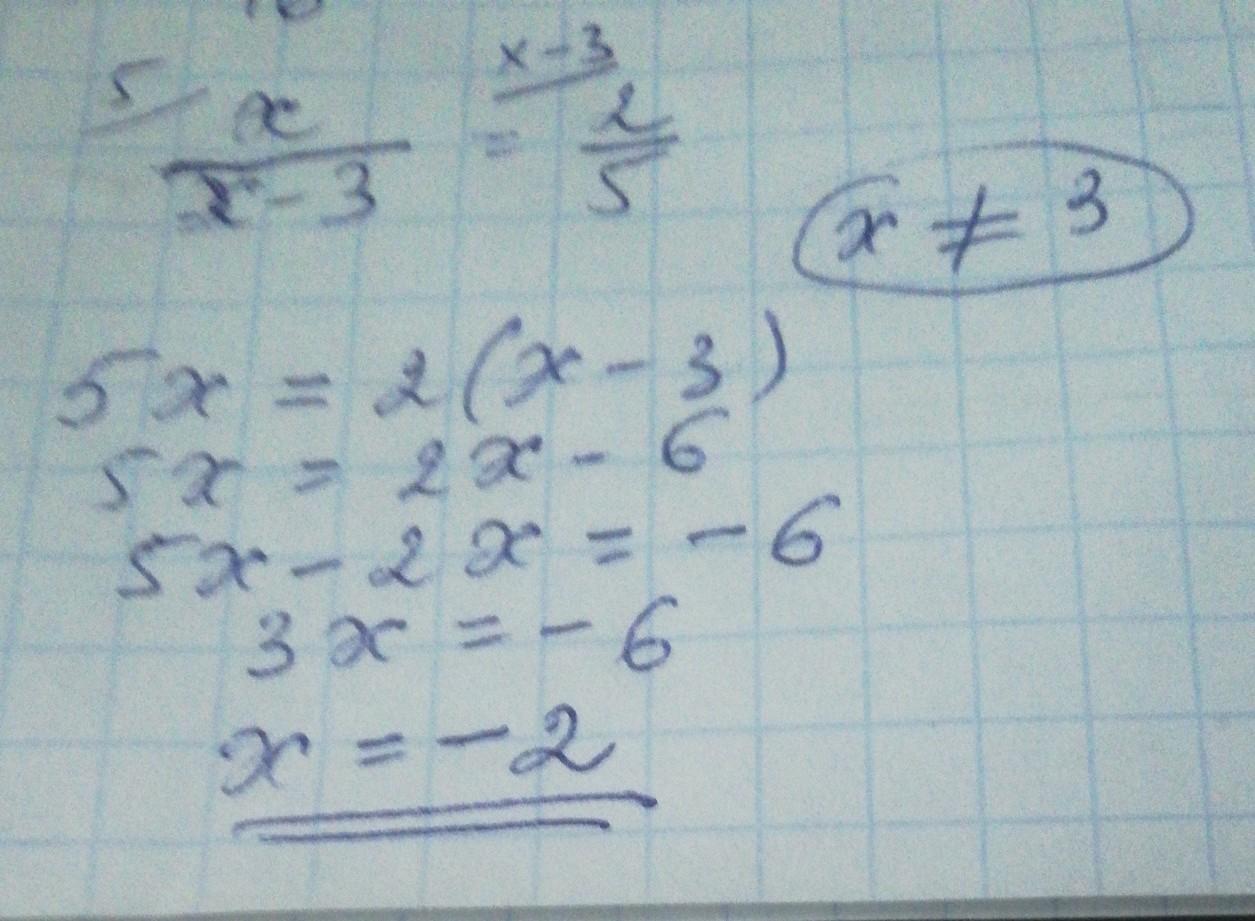 5/ x/(x-3) = x-3/ 2/5
x ≠ 3
5x = 2(x-3)
5x = 2x-6
5x-2x = -6
3x = -6
x = -2